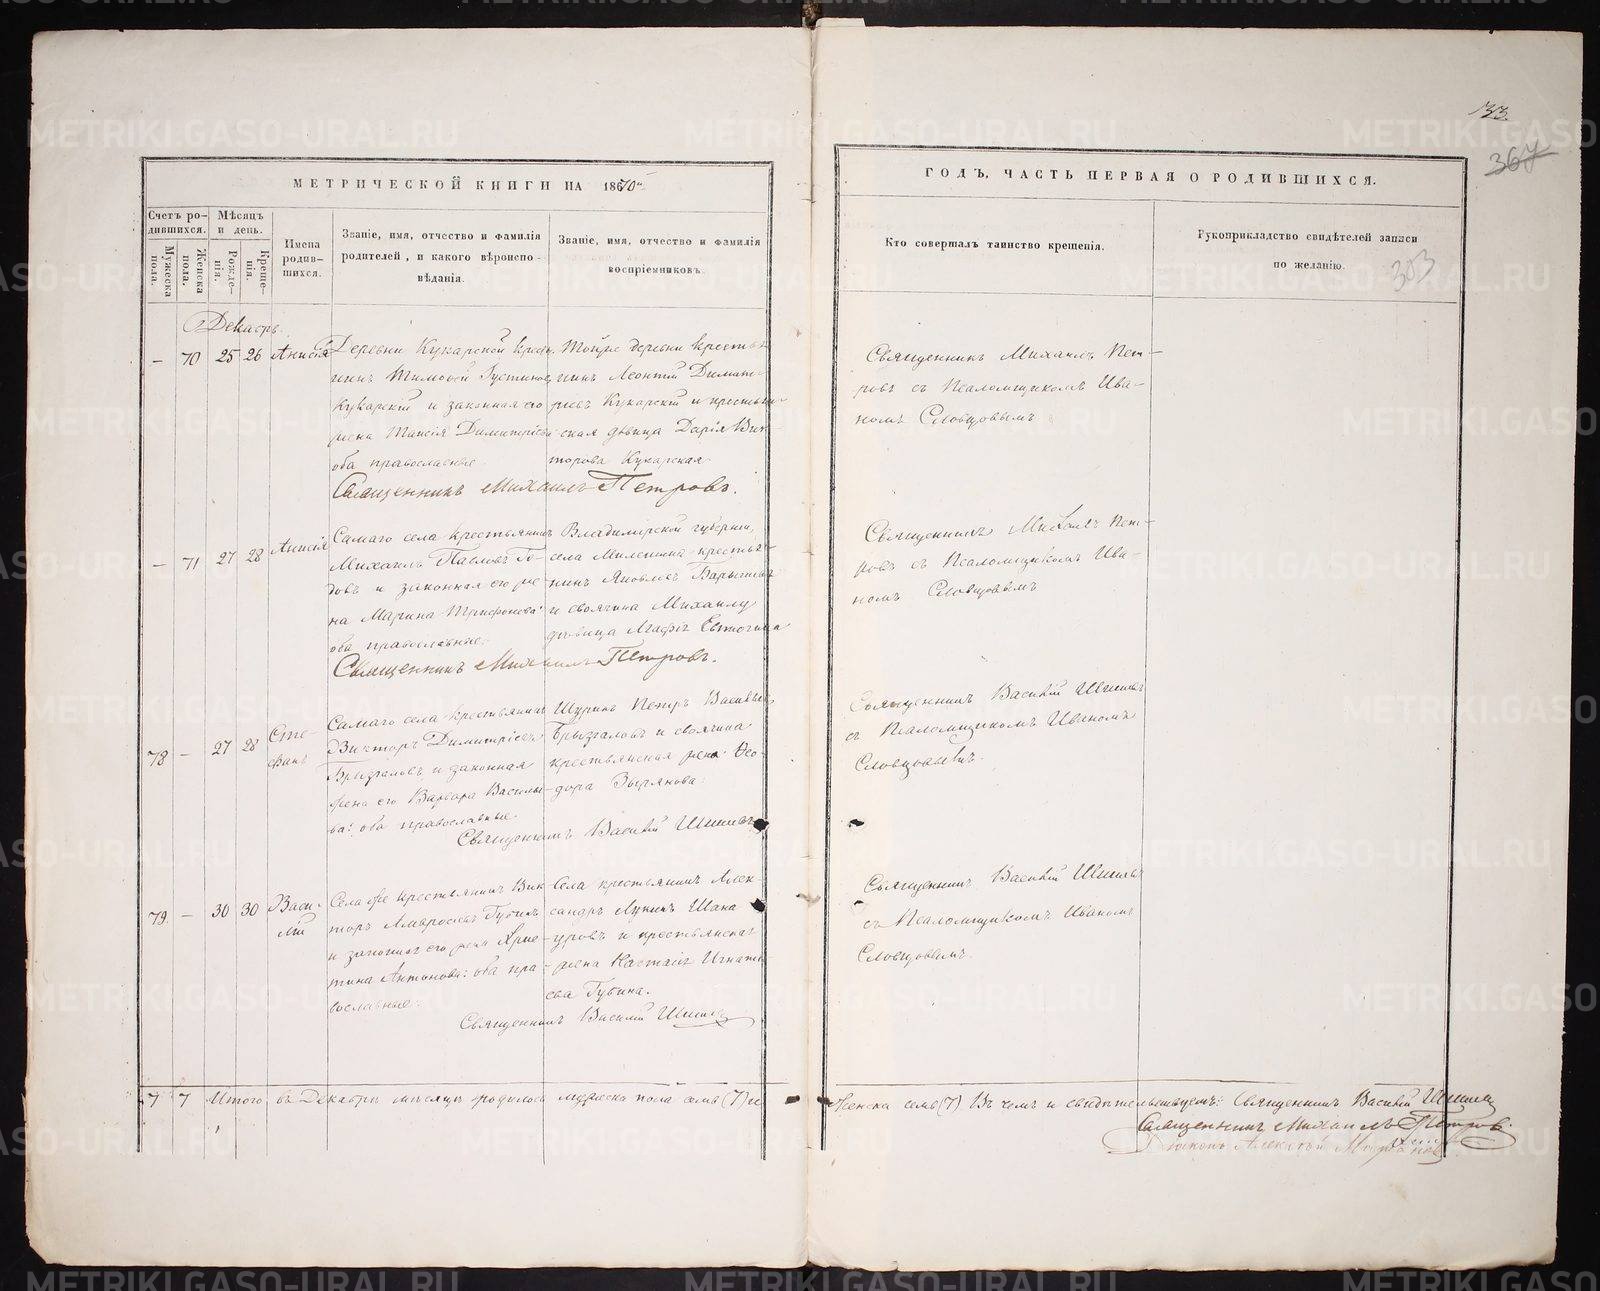 33.
367
303
МЕТРИЧЕСКОЙ КНИГИ НА 1870й
ГОДЪ, ЧАСТЬ ПЕРВАЯ О РОДИВШИХСЯ.
Счетъ ро-
дившихся.
Мужеска пола.
Женска пола.
Мѣсяцъ
и день.
Рожде-
нія.
Креще-
нія.
Имена
родив-
шихся.
Званіе, имя, отчество и фамилія
родителей, и какого вѣроиспо-
вѣданія.
Званіе, имя, отчество и фамилія
воспріемниковъ.
Кто совершалъ таинство крещенія.
Рукоприкладство свидѣтелей записи
по желанію.
Декабрь
— 70 25 26 Анисія
Деревни Кукарской крестья-
нинъ Тимофей Густиновъ
Кукарскій и законная его
жена Таисія Димитріева
оба православные
Тойже деревни крестья-
нинъ Леонтій Димит-
ріевъ Кукарскій и крестьян-
ская дѣвица Дарія Вик-
торова Кукарская
Священникъ Михаилъ Петровъ.
Священникъ Михаилъ Пет-
ровъ съ Псаломщикомъ Ива-
номъ Словцовымъ
— 71 27 28 Анисія
Самаго села крестьянинъ
Михаилъ Павловъ
и законная его же-
на Марина Трифонова
оба православные.
Владимірской губерніи,
села крестья-
нинъ Яковлевъ
и своячина Михаилу
дѣвица Агафія
Священникъ Михаилъ Петровъ.
Священникъ Михаилъ Пет-
ровъ съ Псаломщикомъ Ива-
номъ Словцовымъ
78 — 27 28 Сте-
фанъ
Самаго села крестьянинъ
Викторъ Димитріевъ
Брызгаловъ и законная
жена его Варвара Василье-
ва: оба православные.
Шуринъ Петръ Васильевъ
Брызгаловъ и своячина
крестьянская жена Ѳео-
дора Зырянова.
Священникъ Василій Шишевъ
Священникъ Василій Шишевъ
съ Псаломщикомъ Иваномъ
Словцовымъ.
79 — 30 30 Васи-
лій
Села же крестьянинъ Вик-
торъ Амвросіевъ Губинъ
и законная его жена Хрис-
тина Антонова: оба пра-
вославные.
Села крестьянинъ Алек-
сандръ Лукинъ
и крестьянская
жена Настасія Игнать-
ева Губина.
Священникъ Василій Шишевъ
Священникъ Василій Шишевъ
съ Псаломщикомъ Иваномъ
Словцовымъ.
7 7 Итого въ Декабрѣ мѣсяцѣ родилось мужеска пола семь (7) и
женска семь (7) Въ чемъ и свидѣтельствуемъ: Священникъ Василій Шишевъ
Священникъ Михаилъ Петровъ.
Діаконъ Алексѣй
METRIKI.GASO-URAL.RU